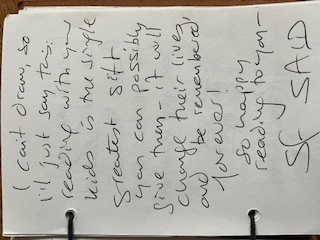 I can't draw, so
I'll just say this:
reading with your
kids is the single
greatest gift
you can possibly
give them – it will
change their lives,
and be remembered
forever!
So happy
reading to you –
SF SAID